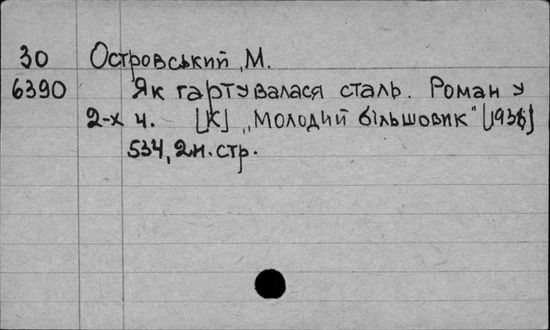 30 Островський, М.
6390 Як гартувалася сталь. Роман у
2-х ч. [К] „Молодий більшовик" [1936]
534, 2н. стр.